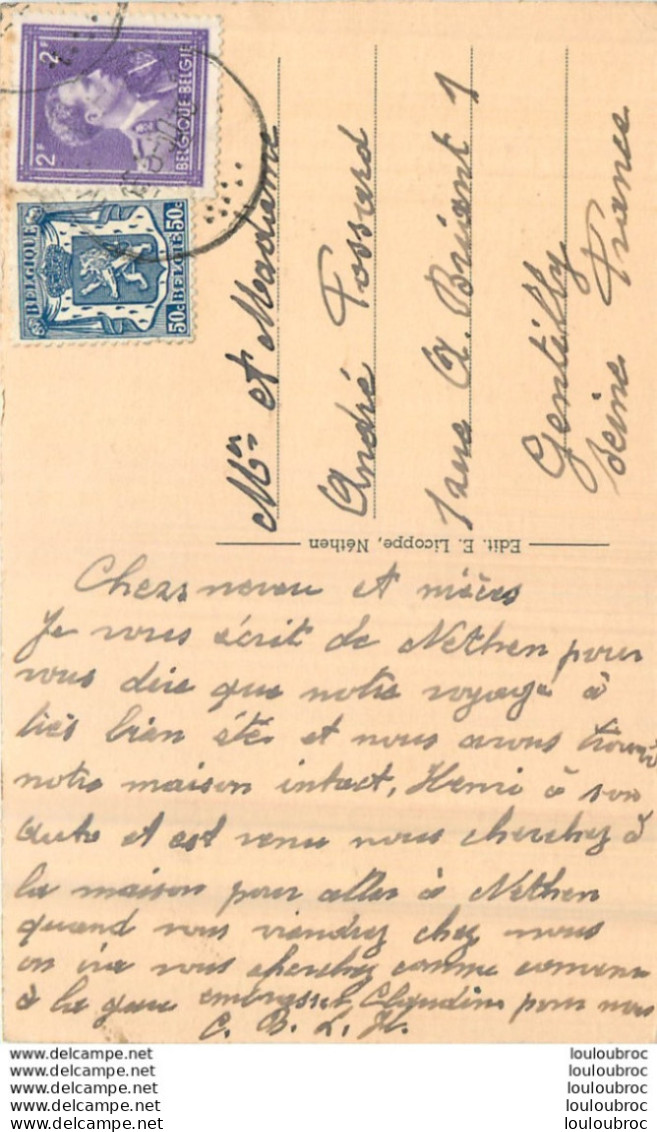 2F 2F
BELGIQUE-BELGIË
BELGIQUE
50c BELGIE 50c
Mr et Madame
André Fossard
1 rue A. Briant 1
Gentilly
Seine France
Edit. E. Licoppe, Néthen
Chers neveu et nièces
Je vous écrit de Nethen pour
vous dire que notre voyage à
très bien été et nous avons trouvé
notre maison intact, Henri à son
auto et est venu nous cherchez à
la maison pour aller à Nethen
quand vous viendrez chez nous
on ira vous cherchez comme convenu
à la gare embrasser Claudine pour nous
C. B. L. H.
www.delcampe.net louloubroc
www.delcampe.net louloubroc
www.delcampe.net louloubroc
www.delcampe.net louloubroc
www.delcampe.net louloubroc